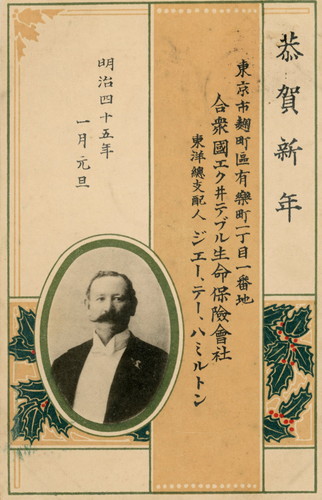 恭賀新年
東京市麹町區有樂町一丁目一番地
合衆國エク井テブル生命保險會社
東洋總支配人 ジエー、テー、ハミルトン
明治四十五年
一月元旦